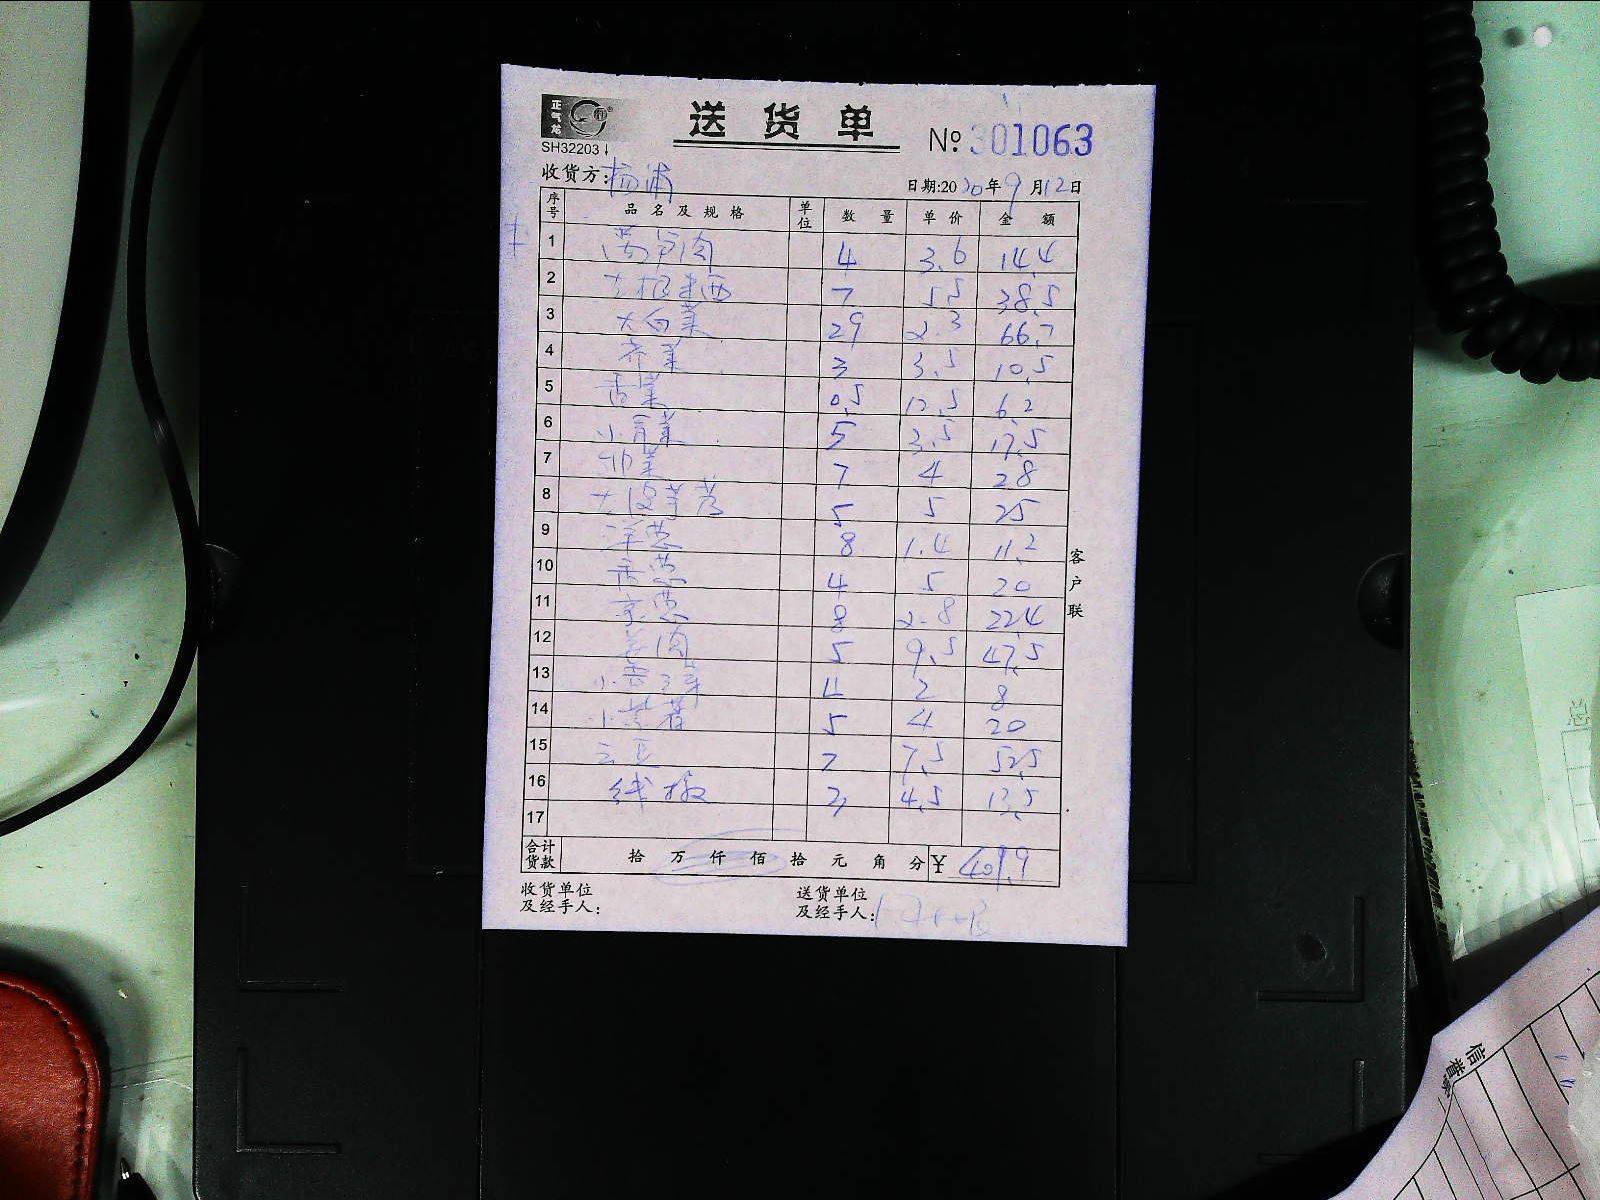 正气龙
SH32203
送货单
№ 301063
收货方: 杨浦
日期:2020年9月12日
序号 品名及规格 单位 数量 单价 金额
1 莴笋肉 4 3.6 14.4
2 7 5.5 38.5
3 大白菜 29 2.3 66.7
4 芹菜 3 3.5 10.5
5 香菜 0.5 12.5 6.2
6 小青菜 5 3.5 17.5
7 7 4 28
8 5 5 25
9 洋葱 8 1.4 11.2
10 香葱 4 5 20
11 京葱 8 2.8 22.4
12 姜肉 5 9.5 47.5
13 4 2 8
14 5 4 20
15 7 7.5 52.5
16 线椒 3 4.5 13.5
17
合计货款 拾万仟佰拾元角分 ¥ 401.9
收货单位及经手人:
送货单位及经手人:
客户联
信誉